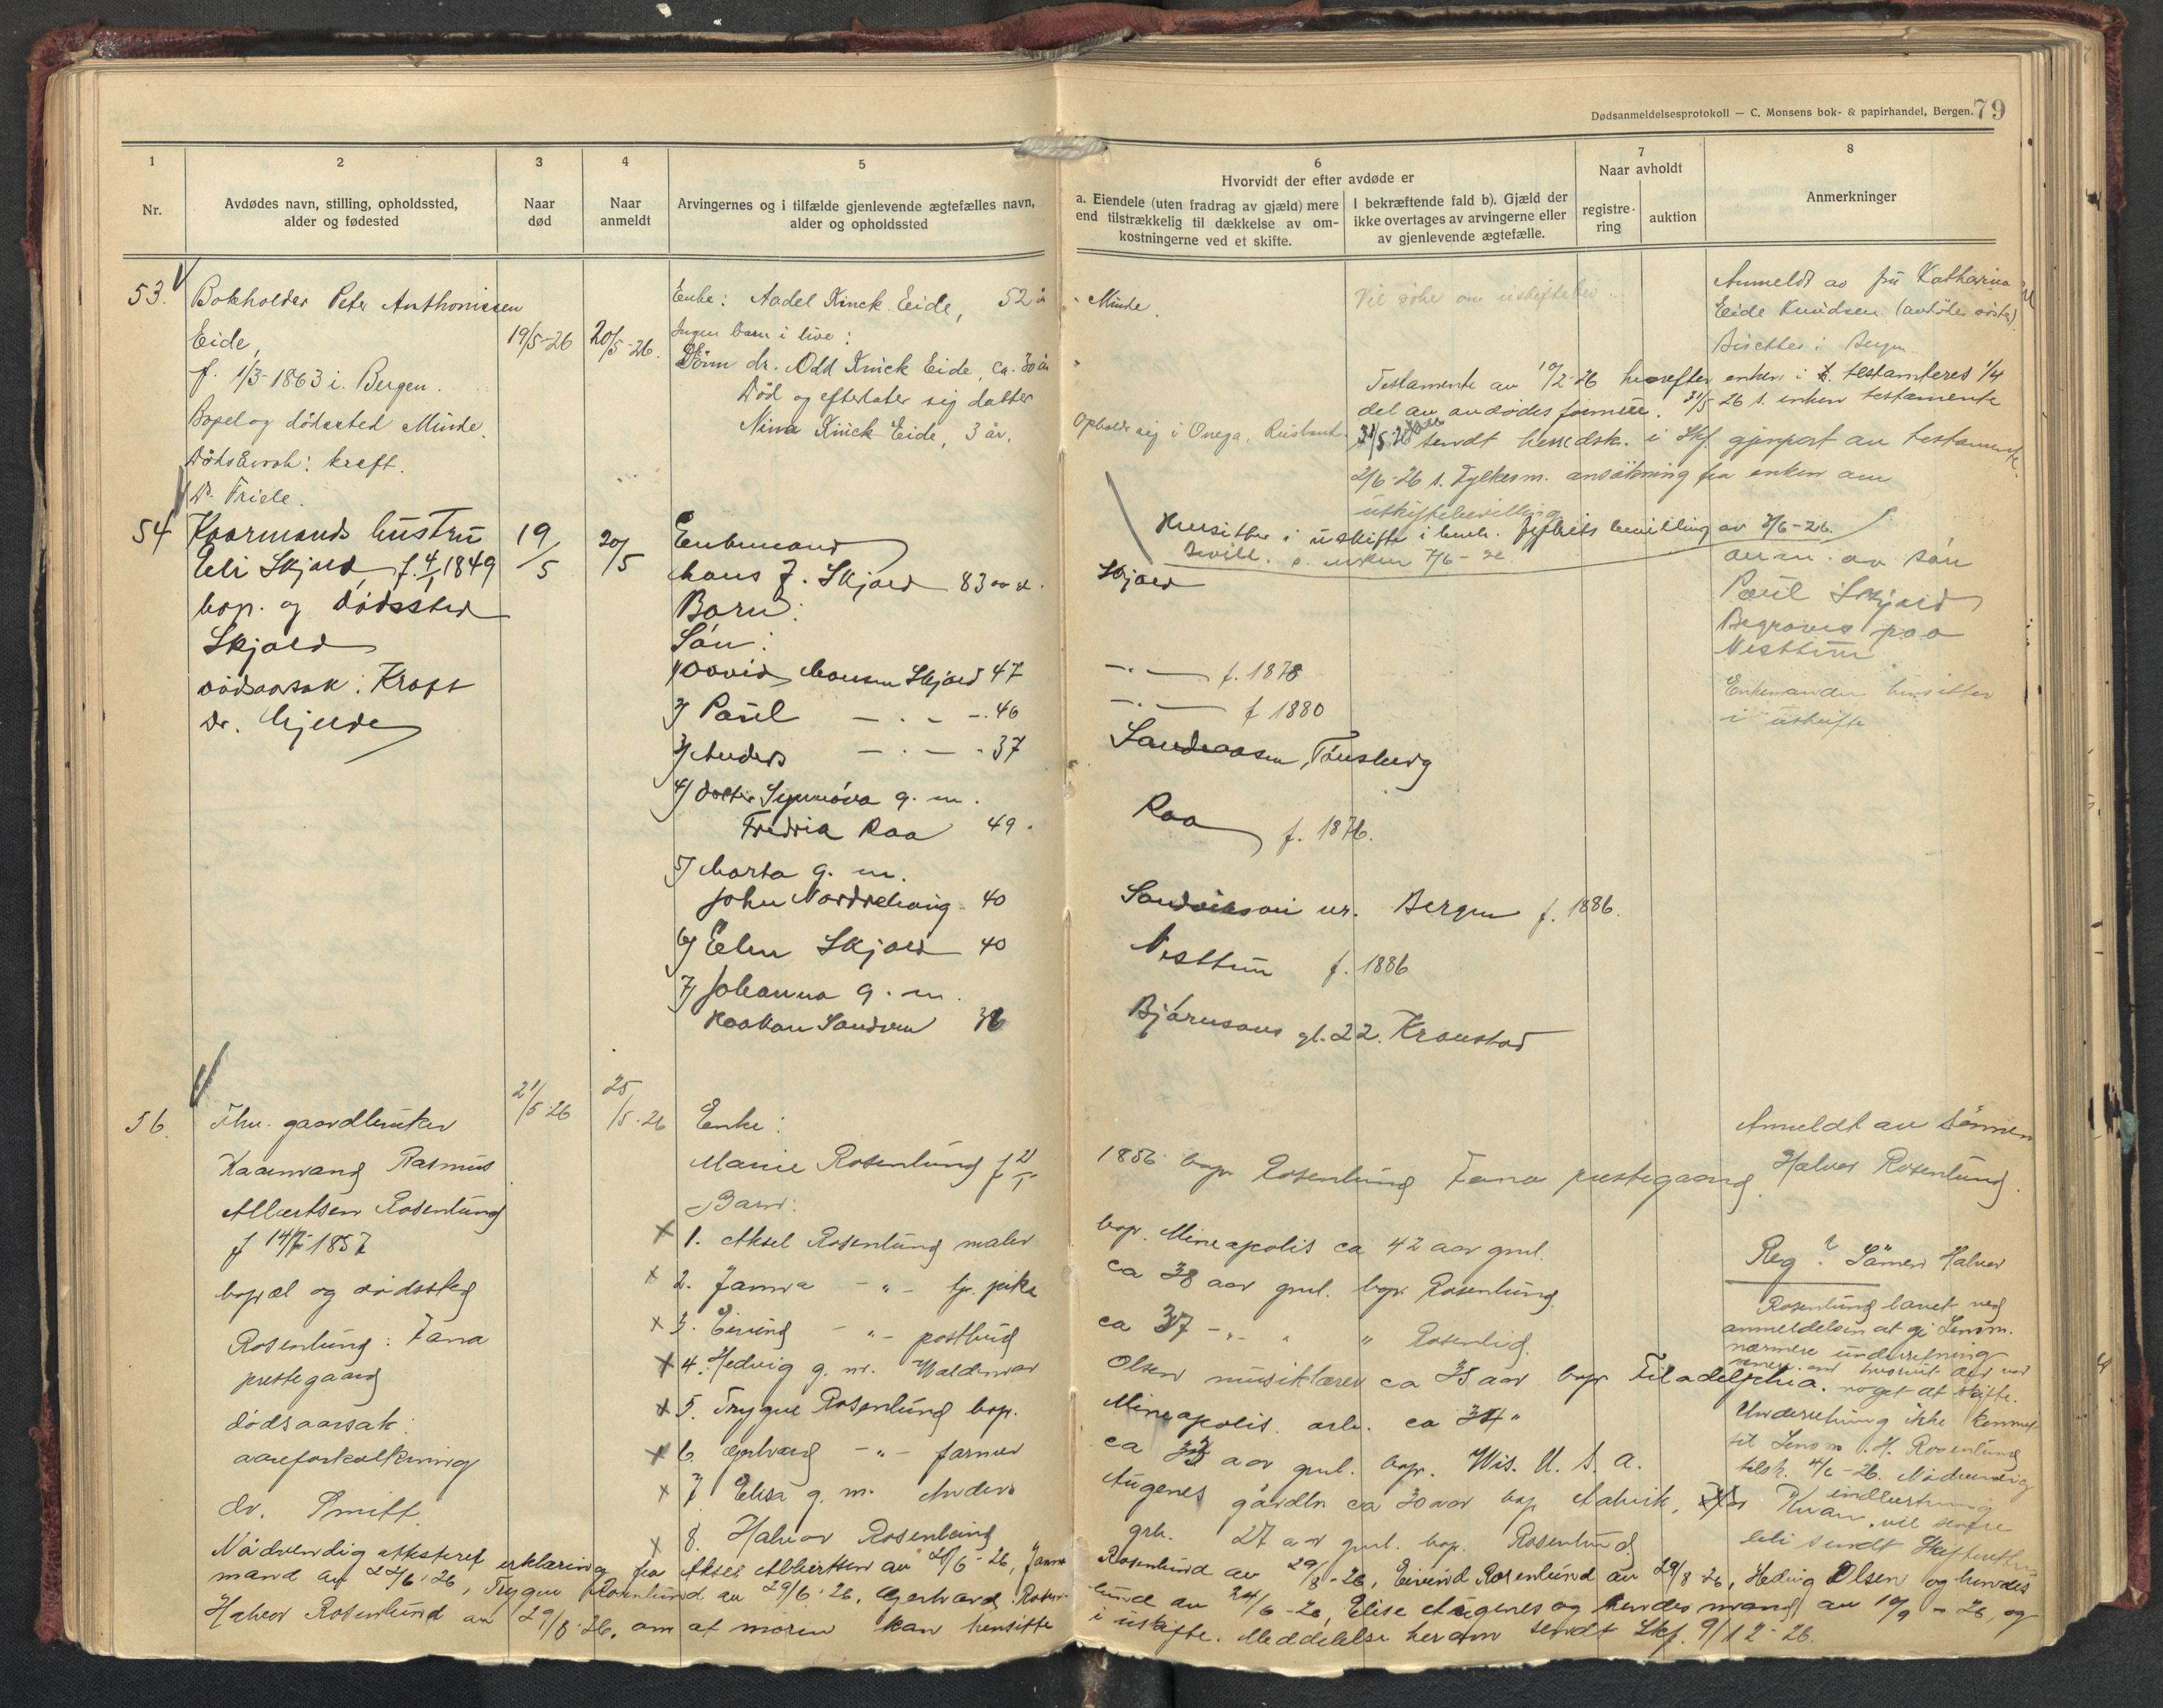 Dødsanmeldelsesprotokoll — C. Monsens bok- & papirhandel, Bergen. 79
1
Nr.
2
Avdødes navn, stilling, opholdssted,
alder og fødested
3
Naar
død
4
Naar
anmeldt
5
Arvingernes og i tilfælde gjenlevende ægtefælles navn,
alder og opholdssted
6
Hvorvidt der efter avdøde er
a. Eiendele (uten fradrag av gjæld) mere
end tilstrækkelig til dækkelse av om-
kostningerne ved et skifte.
I bekræftende fald b). Gjæld der
ikke overtages av arvingerne eller
av gjenlevende ægtefælle.
7
Naar avholdt
registre-
ring
auktion
8
Anmerkninger
53.
Bokholder Peter Anthonissen
Eide,
f. 1/3-1863 i Bergen.
Bopel og dödssted Minde.
Dödsårsak: kreft.
Dr. Friele.
19/5-26
20/5-26.
Enke: Aadel Kinck Eide, 52 år
Ingen barn i live:
Sönn dr. Odd Kinck Eide, ca. 30 år
Död og efterlater sig datter
Nina Kinck Eide, 3 år.
Minde.
Opholdt sig i Onega, Rusland.
Vil söke om uskiftebev.
Testamente av 10/2-26 hvorefter enken i testamteres 1/4
del av avdödes formue. 31/5 26 s. enken testamente
31/5-26 sendt herredsk. i Skf. gjenpart av testamente.
2/6-26 s. Fylkesm. ansökning fra enken om
uskiftebevilling
Hensitter i uskifte i henh. Fylkets bevilling av 3/6-26.
Bevill. s. enken 7/6-26
Anmeldt av fru Katharina
Eide Knudsen (avdödes söster).
Bisettes i Bergen.
54
Kaarmands hustru
Eli Skjold f. 4/1 1849
bop. og dödssted
Skjold
dödsarsak: Kraft
Dr. Gjelde
19/5
20/5
Enkemand
Mons J. Skjold 83 aar.
Barn:
Sön:
1/ David Monsen Skjold 47
2/ Paul — . — . 46
3/ Anders — . — . 37
4/ datter Synnöva g. m.
Fredrik Raa 49.
5/ Marta g. m.
John Nordrehaug 40
6/ Elen Skjold 40
7/ Johanna g. m.
Haakon Sandven 36
Skjold
— . — f. 1878
— . — f 1880
Sandeaasen, Tönsberg
Raa f. 1876.
Sandviksvei nr. Bergen f. 1886.
Nesttun f. 1886
Björnsons gt. 22. Kronstad
anm. av sön
Paul Skjold
Begraves paa
Nesttun.
Enkemanden hensitter
i uskifte
56.
Fhv. gaardbruker
Kaarmand Rasmus
Albertsen Rosenlund
f 14/7 1857
bopæl og dödssted
Rosenlund: Fana
prestegaard
dödsaarsak:
aareforkalkning
dr. Smitt.
21/5-26
25/5-26
Enke:
Marie Rosenlund f 21/5
1856 bop. Rosenlund Fana prestegaard.
Barn:
x 1. Aksel Rosenlund maler
bop. Mineapolis ca 42 aar gml.
x 2. Janna — " — tj. pike
ca 38 aar gml. bop. Rosenlund.
x 3. Eivind — " — postbud
ca 37 — " — " " Rosenlund.
x 4. Hedvig g. m. Waldemar
Olsen musiklærer ca 35 aar bop. Filadelphia.
x 5. Trygve Rosenlund bop.
Mineapolis. arb. ca 34 "
x 6. Gerhard — " — farmer
ca 33 aar gml. bop. Wis. U. S. A.
x 7 Elisa g. m. Anders
Augenes gårdbr ca 30 aar bop
x 8. Halvor Rosenlund
grb. 27 aar gml. bop. Rosenlund
Anmeldt av sönnen
Halvor Rosenlund.
Reg? Sönnen Halvor
Rosenlund lovet ved
anmeldelsen at gi Lensm.
nærmere underretning
senere om hvorvit det var
noget at skifte.
Underretning ikke kommet
til Lensm. H. Rosenlund
tilsk. 4/6-26. Nödvendig
Nödvendig attestert erklæring fra Aksel Albertsen av 28/6-26, Janna Rosenlund av 29/8-26, Eivind Rosenlund av 29/8-26, Hedvig Olsen og hendes
mand av 22/6-26, Trygve Rosenlund av 29/6-26, Gerhard Rosenlund av 24/6-26, Elise Augenes og hendes mand av 10/9-26, og
Halvor Rosenlund av 29/8-26, om at moren kan hensitte i uskifte. Meddelelse herom sendt Skf. 9/12-26.